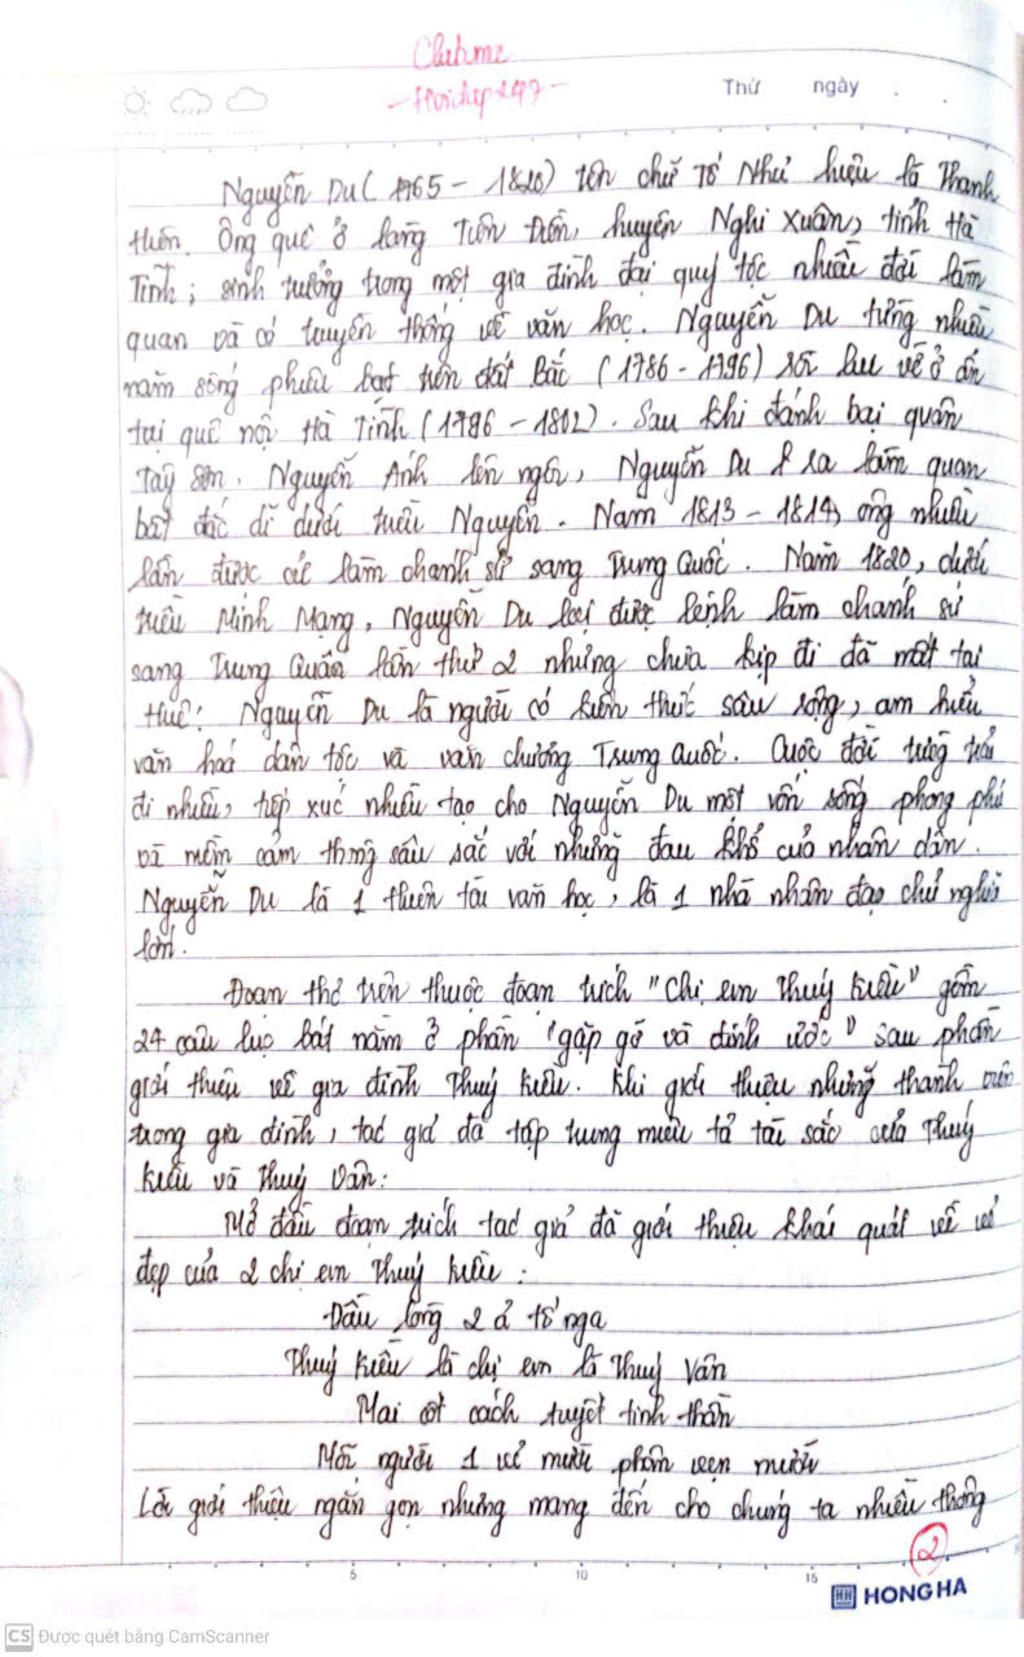 Thứ ngày
Nguyễn Du (1765 - 1820) tên chữ Tố Như hiệu là Thanh
Hiên. Ông quê ở làng Tiên Điền, huyện Nghi Xuân, tỉnh Hà
Tĩnh; sinh trưởng trong một gia đình đại quý tộc nhiều đời làm
quan và có truyền thống về văn học. Nguyễn Du từng nhiều
năm sống phiêu bạt trên đất Bắc (1786 - 1796) rồi lui về ở ẩn
tại quê nội Hà Tĩnh (1796 - 1802). Sau khi đánh bại quân
Tây Sơn, Nguyễn Ánh lên ngôi, Nguyễn Du ra làm quan
bất đắc dĩ dưới triều Nguyễn. Năm 1813 - 1814, ông nhiều
lần được cử làm chánh sứ sang Trung Quốc. Năm 1820, dưới
triều Minh Mạng, Nguyễn Du lại được lệnh làm chánh sứ
sang Trung Quốc lần thứ 2 nhưng chưa kịp đi đã mất tại
Huế. Nguyễn Du là người có kiến thức sâu rộng, am hiểu
văn hoá dân tộc và văn chương Trung Quốc. Cuộc đời từng trải
đi nhiều, tiếp xúc nhiều tạo cho Nguyễn Du một vốn sống phong phú
và niềm cảm thông sâu sắc với những đau khổ của nhân dân.
Nguyễn Du là 1 thiên tài văn học, là 1 nhà nhân đạo chủ nghĩa
lớn.
Đoạn thơ trên thuộc đoạn trích "Chị em Thuý Kiều" gồm
24 câu lục bát nằm ở phần "gặp gỡ và đính ước" sau phần
giới thiệu về gia đình Thuý Kiều. Khi giới thiệu những thành viên
trong gia đình, tác giả đã tập trung miêu tả tài sắc của Thuý
Kiều và Thuý Vân:
Mở đầu đoạn trích tác giả đã giới thiệu khái quát về vẻ
đẹp của 2 chị em Thuý Kiều :
Đầu lòng 2 ả tố nga
Thuý Kiều là chị em là Thuý Vân
Mai cốt cách tuyết tinh thần
Mỗi người 1 vẻ mười phân vẹn mười
Lời giới thiệu ngắn gọn nhưng mang đến cho chúng ta nhiều thông
2
5 10 15
HH HONG HA
CS Được quét bằng CamScanner